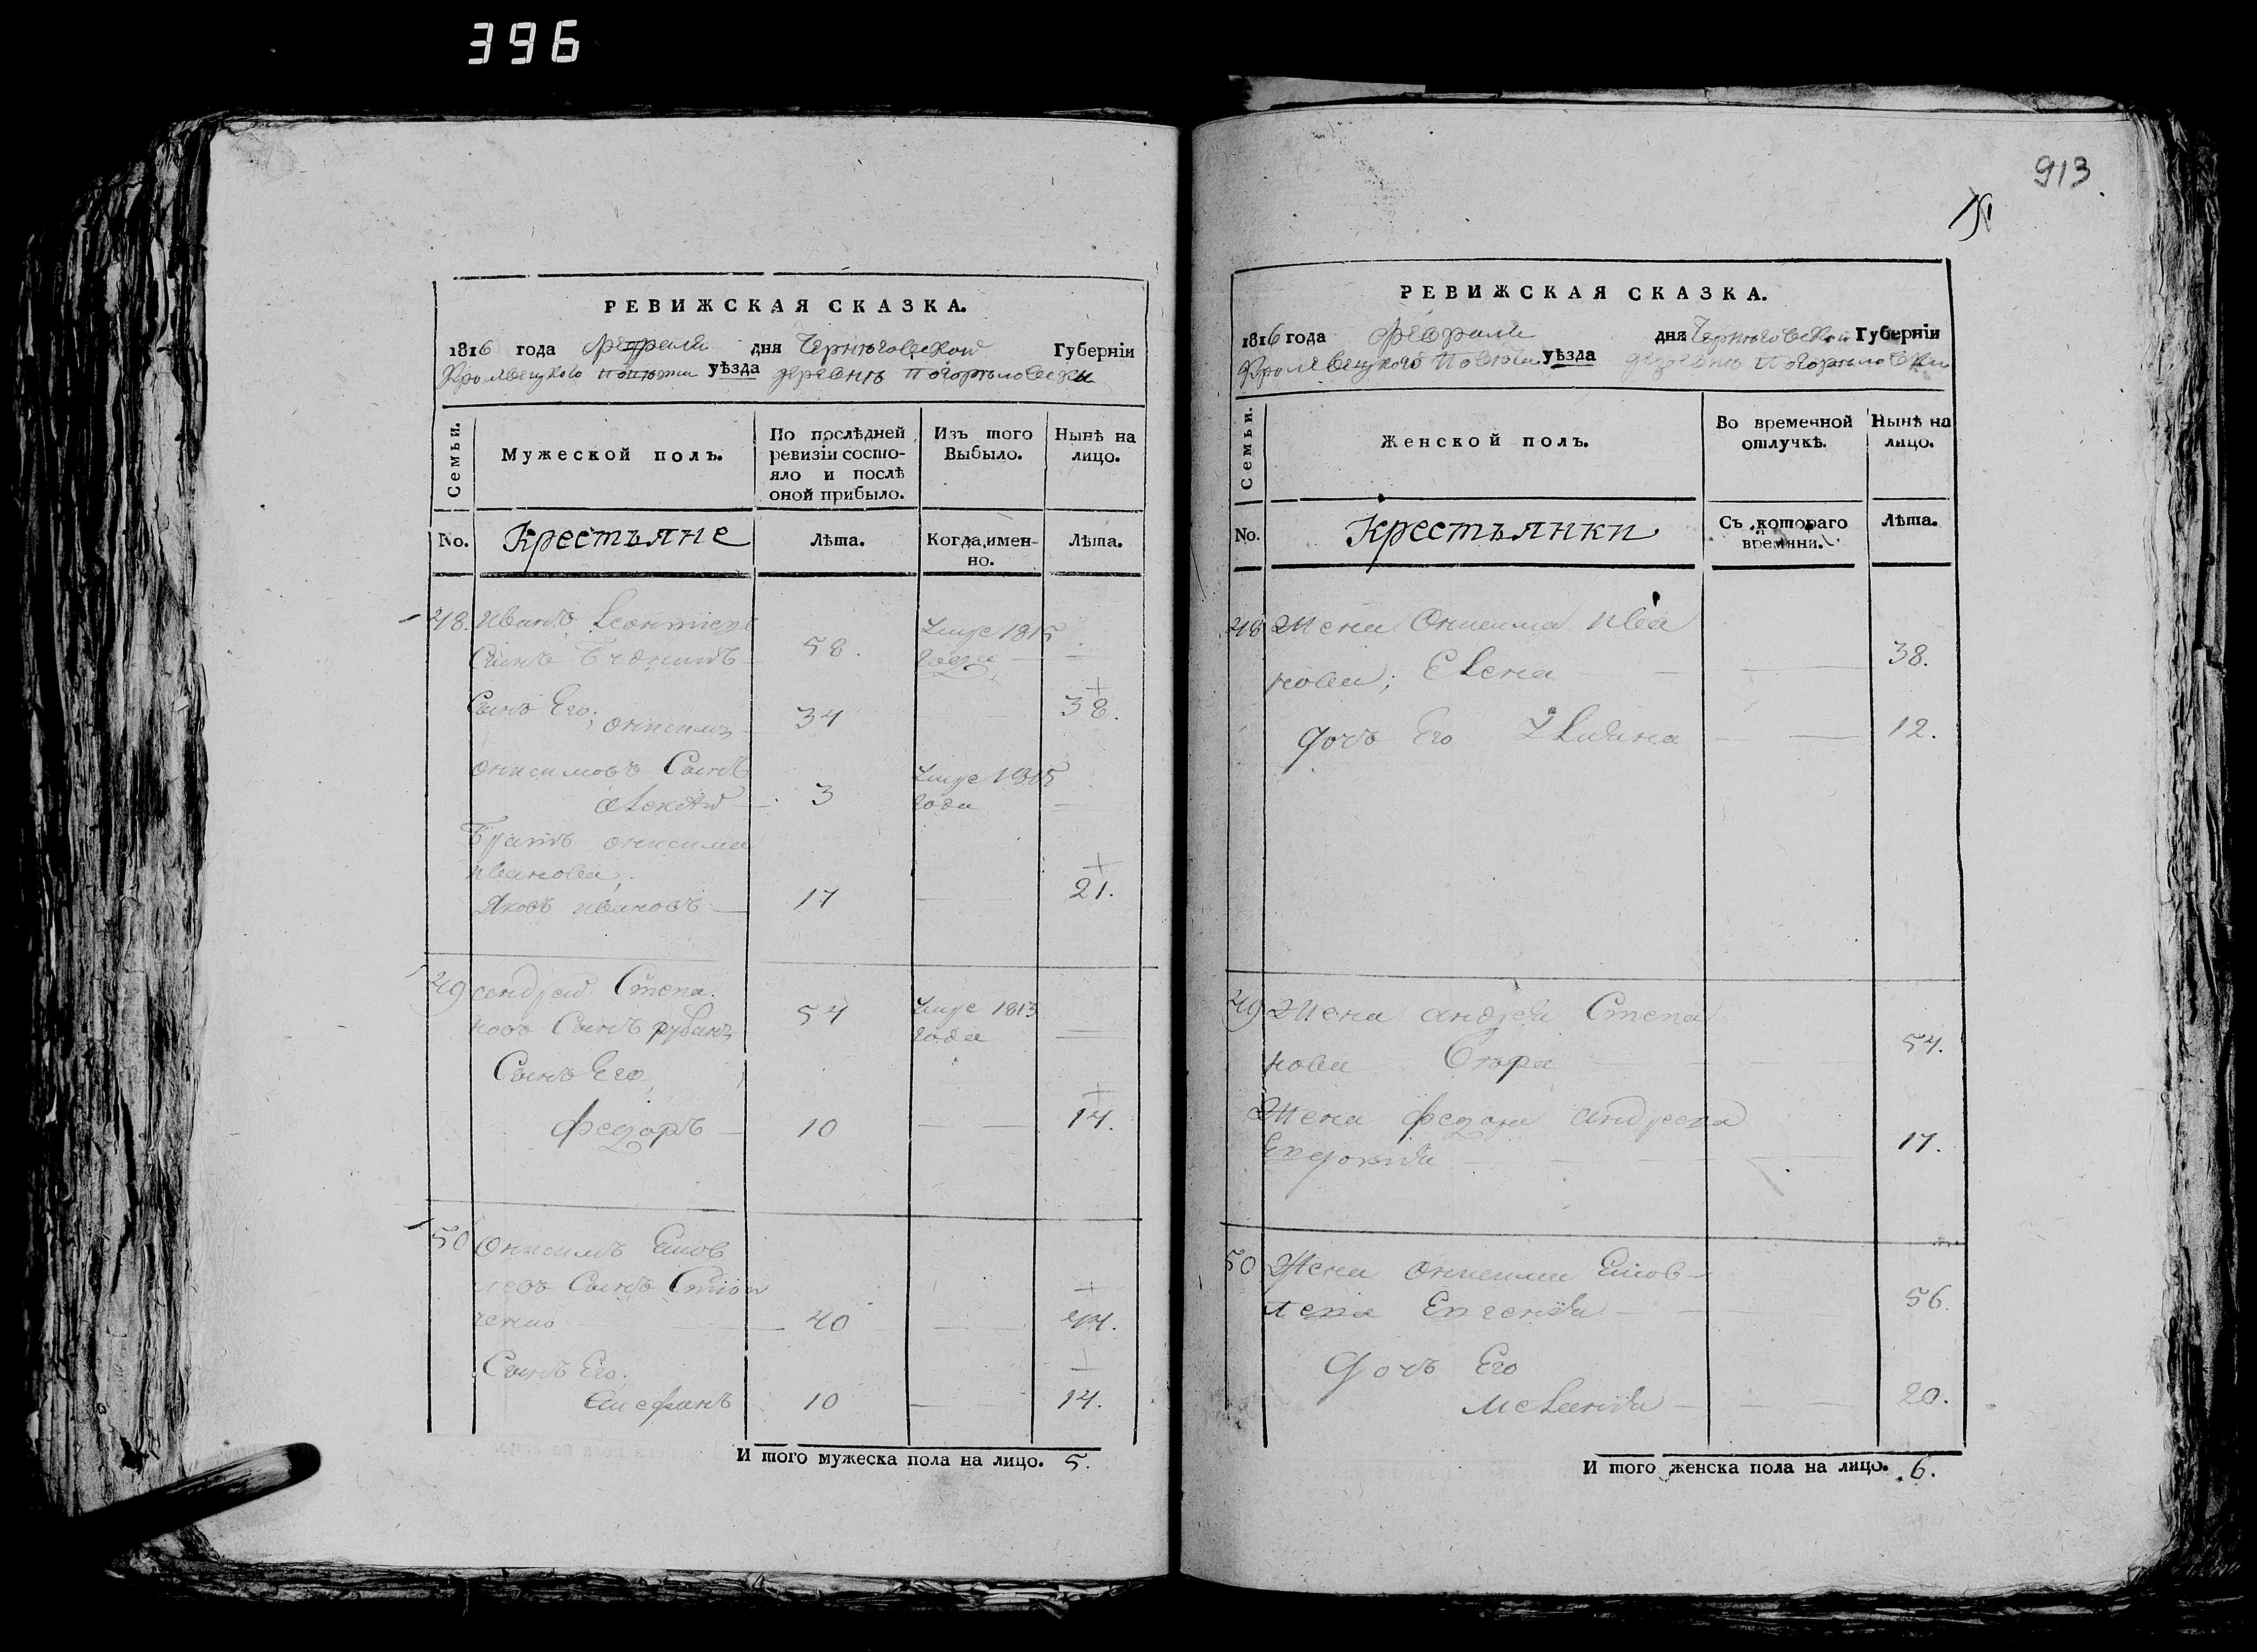 396
РЕВИЖСКАЯ СКАЗКА.
1816 года февраля дня Черниговской Губерніи
Кролвецкого повѣта уѣзда деревнѣ Погорѣловски
Семьи.
Мужеской полъ.
По послѣдней ревизіи состо-
яло и послѣ
оной прибыло.
Изъ того
Выбыло.
Нынѣ на
лицо.
No.
Крестьяне
Лѣта.
Когда, имен-
но.
Лѣта.
48. Иванъ Леонтиевъ
Сынъ 58. 1815
года
Сынъ Его; Онисимъ 34 38.
Онисимовъ Сынъ 1815
Алексѣй 3 года
Братъ Онисима
Иванова;
Яковъ Ивановъ 17 21.
49 Андрей Степа
новъ Сынъ Рубанъ 54 1813
года
Сынъ Его,
Федоръ 10 14.
50 Онисимъ
Сынъ
40 44.
Сынъ Его;
10 14.
И того мужеска пола на лицо. 5.
913
РЕВИЖСКАЯ СКАЗКА.
1816 года февраля дня Черниговской Губерніи
Кролвецкого Повѣта уѣзда деревнѣ Погорѣловки
Семьи.
Женской полъ.
Во временной
отлучкѣ.
Нынѣ на
лицо.
No.
Крестьянки
Съ котораго
времяни.
Лѣта.
48 Жена Онисима Ива
нова; Елена 38.
Дочь Его 12.
49 Жена Андрея Степа
нова 54.
Жена Федора Андреева
17.
50 Жена Онисима
56.
Дочь Его
Меланія 20.
И того женска пола на лицо. 6.